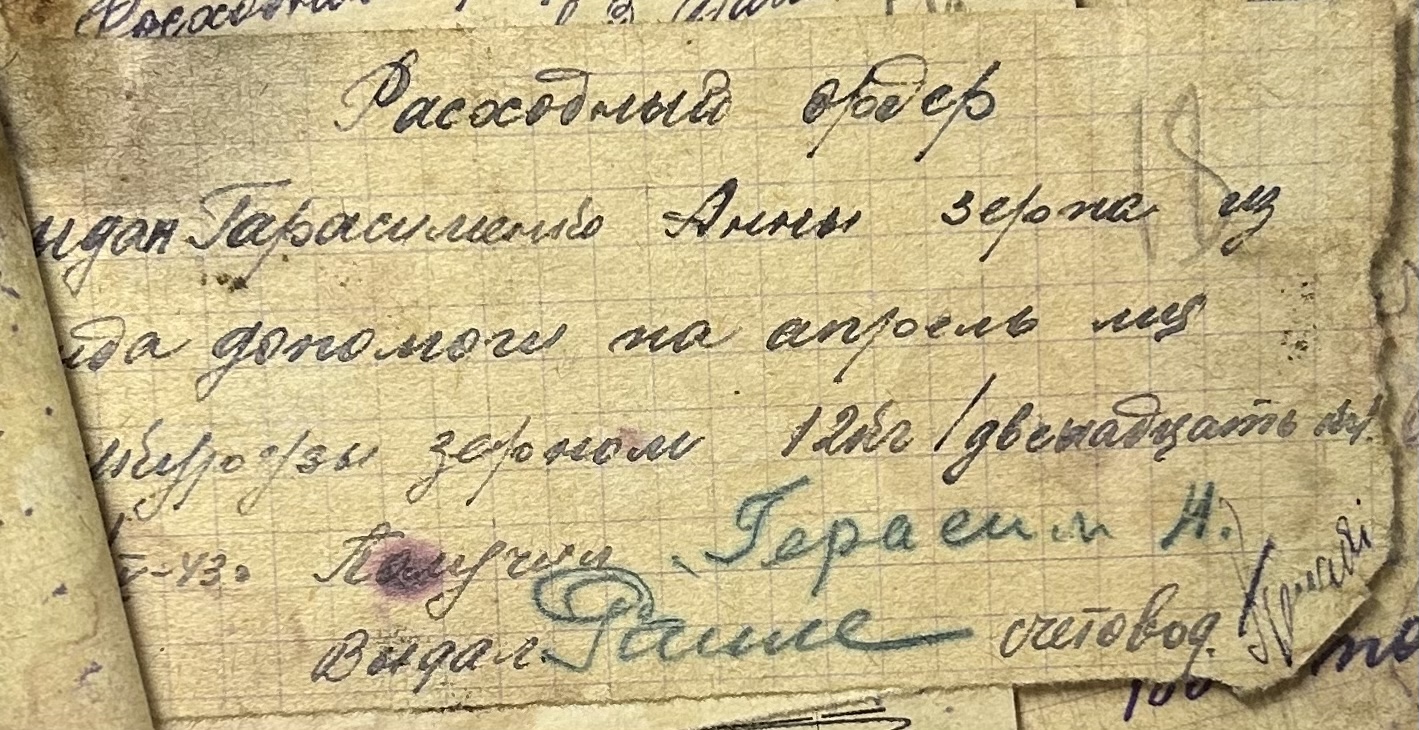 Расходный ордер
18
идан Гарасименко Анны зерна из
нда допомоги на апрель мц
кукурузы зерном 12кг /двенадцать кг/
-43. Получил Герасим А.
Выдал счетовод